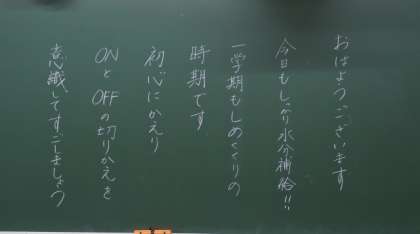 おはようございます
今日もしっかり水分補給!!
一学期もしめくくりの
時期です
初心にかえり
ONとOFFの切りかえを
意識してすごしましょう